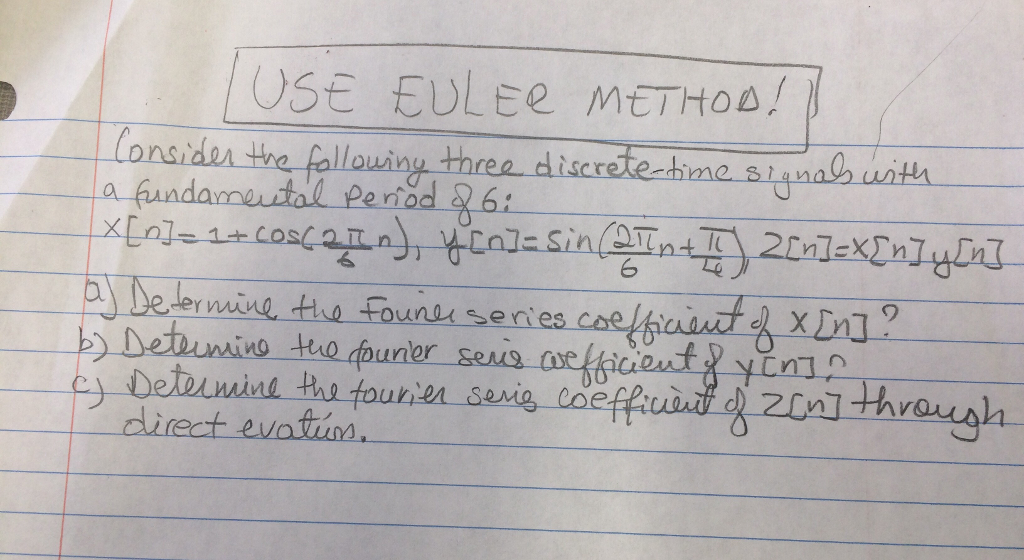 USE EULER METHOD!
Consider the following three discrete-time signals with
a fundamental period of 6:
x[n]=1+cos(2π/6 n), y[n]=sin(2π/6 n+π/4), z[n]=x[n]y[n]
a) Determine the Fourier series coefficient of x[n]?
b) Determine the fourier seris coefficient of y[n]?
c) Determine the fourier series coefficient of z[n] through
direct evatúm.